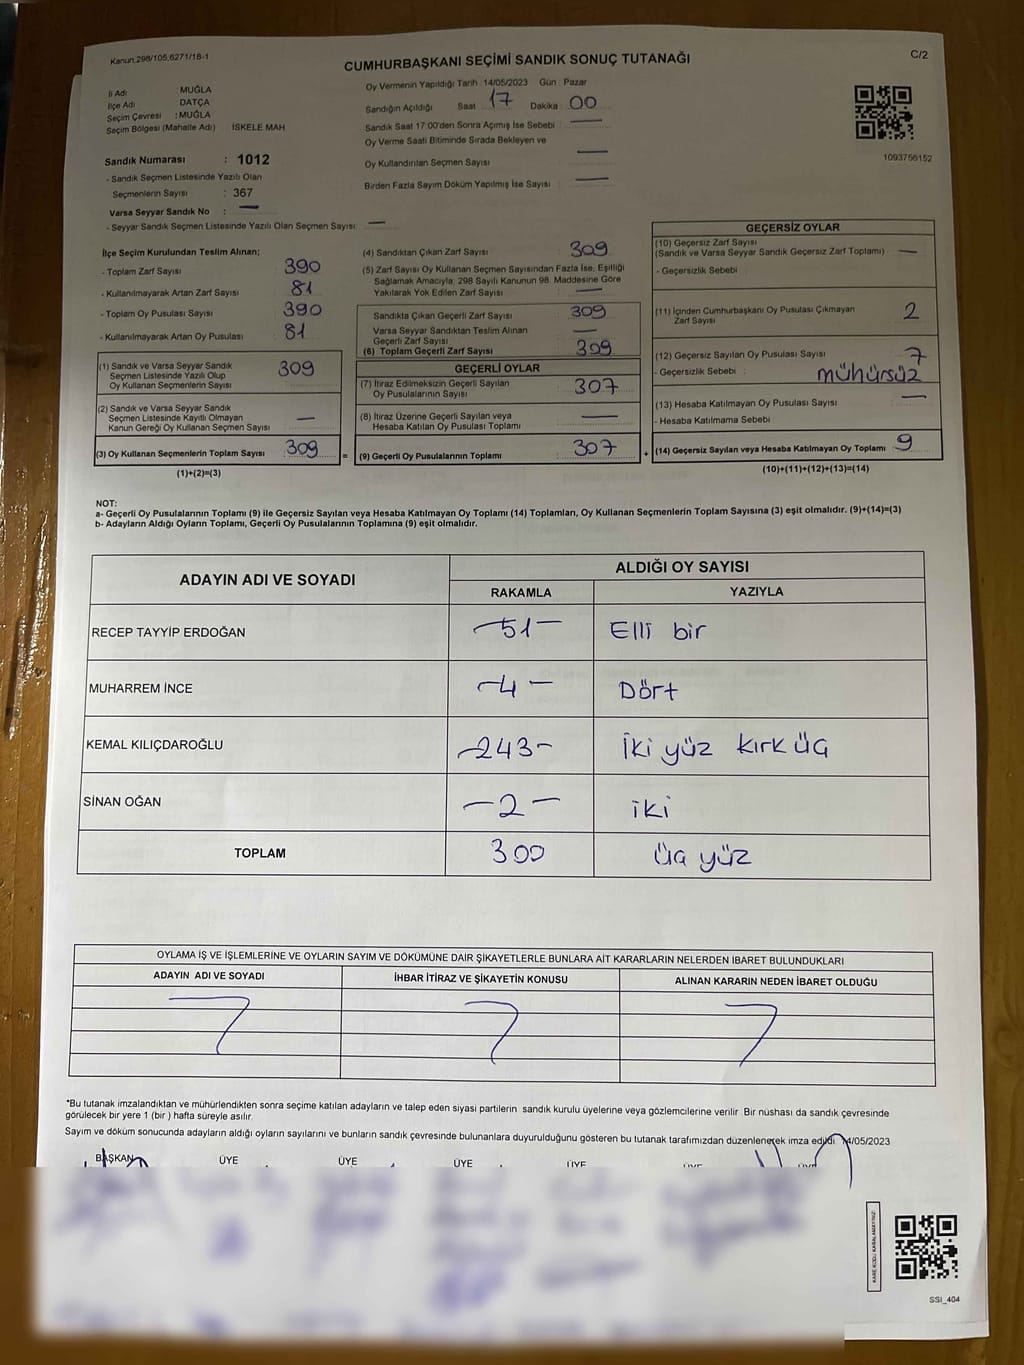 Kanun:298/105,6271/18-1
C/2
CUMHURBAŞKANI SEÇİMİ SANDIK SONUÇ TUTANAĞI
İl Adı : MUĞLA
İlçe Adı DATÇA
Seçim Çevresi : MUĞLA
Seçim Bölgesi (Mahalle Adı) İSKELE MAH
Oy Vermenin Yapıldığı Tarih :14/05/2023 Gün : Pazar
Sandığın Açıldığı Saat 17 Dakika 00
Sandık Saat 17:00'den Sonra Açımış İse Sebebi —
Oy Verme Saati Bitiminde Sırada Bekleyen ve
Oy Kullandırılan Seçmen Sayısı —
Birden Fazla Sayım Döküm Yapılmış İse Sayısı —
1093756152
Sandık Numarası : 1012
- Sandık Seçmen Listesinde Yazılı Olan
Seçmenlerin Sayısı : 367
Varsa Seyyar Sandık No : —
- Seyyar Sandık Seçmen Listesinde Yazılı Olan Seçmen Sayısı: —
İlçe Seçim Kurulundan Teslim Alınan;
- Toplam Zarf Sayısı 390
- Kullanılmayarak Artan Zarf Sayısı 81
- Toplam Oy Pusulası Sayısı 390
- Kullanılmayarak Artan Oy Pusulası 81
(1) Sandık ve Varsa Seyyar Sandık
Seçmen Listesinde Yazılı Olup
Oy Kullanan Seçmenlerin Sayısı 309
(2) Sandık ve Varsa Seyyar Sandık
Seçmen Listesinde Kayıtlı Olmayan
Kanun Gereği Oy Kullanan Seçmen Sayısı —
(3) Oy Kullanan Seçmenlerin Toplam Sayısı 309
(1)+(2)=(3)
(4) Sandıktan Çıkan Zarf Sayısı 309
(5) Zarf Sayısı Oy Kullanan Seçmen Sayısından Fazla İse, Eşitliği
Sağlamak Amacıyla, 298 Sayılı Kanunun 98. Maddesine Göre
Yakılarak Yok Edilen Zarf Sayısı —
Sandıkta Çıkan Geçerli Zarf Sayısı 309
Varsa Seyyar Sandıktan Teslim Alınan
Geçerli Zarf Sayısı —
(6) Toplam Geçerli Zarf Sayısı 309
GEÇERLİ OYLAR
(7) İtiraz Edilmeksizin Geçerli Sayılan
Oy Pusulalarının Sayısı 307
(8) İtiraz Üzerine Geçerli Sayılan veya
Hesaba Katılan Oy Pusulası Toplamı —
= (9) Geçerli Oy Pusulalarının Toplamı 307
GEÇERSİZ OYLAR
(10) Geçersiz Zarf Sayısı
(Sandık ve Varsa Seyyar Sandık Geçersiz Zarf Toplamı) —
- Geçersizlik Sebebi :
(11) İçinden Cumhurbaşkanı Oy Pusulası Çıkmayan
Zarf Sayısı 2
(12) Geçersiz Sayılan Oy Pusulası Sayısı 7
- Geçersizlik Sebebi : mühürsüz
(13) Hesaba Katılmayan Oy Pusulası Sayısı —
- Hesaba Katılmama Sebebi :
+ (14) Geçersiz Sayılan veya Hesaba Katılmayan Oy Toplamı 9
(10)+(11)+(12)+(13)=(14)
NOT:
a- Geçerli Oy Pusulalarının Toplamı (9) ile Geçersiz Sayılan veya Hesaba Katılmayan Oy Toplamı (14) Toplamları, Oy Kullanan Seçmenlerin Toplam Sayısına (3) eşit olmalıdır. (9)+(14)=(3)
b- Adayların Aldığı Oyların Toplamı, Geçerli Oy Pusulalarının Toplamına (9) eşit olmalıdır.
ADAYIN ADI VE SOYADI
ALDIĞI OY SAYISI
RAKAMLA YAZIYLA
RECEP TAYYİP ERDOĞAN —51— Elli bir
MUHARREM İNCE —4— Dört
KEMAL KILIÇDAROĞLU —243— İki yüz kırk üç
SİNAN OĞAN —2— iki
TOPLAM 300 üç yüz
OYLAMA İŞ VE İŞLEMLERİNE VE OYLARIN SAYIM VE DÖKÜMÜNE DAİR ŞİKAYETLERLE BUNLARA AİT KARARLARIN NELERDEN İBARET BULUNDUKLARI
ADAYIN ADI VE SOYADI İHBAR İTİRAZ VE ŞİKAYETİN KONUSU ALINAN KARARIN NEDEN İBARET OLDUĞU
*Bu tutanak imzalandıktan ve mühürlendikten sonra seçime katılan adayların ve talep eden siyasi partilerin sandık kurulu üyelerine veya gözlemcilerine verilir. Bir nüshası da sandık çevresinde
görülecek bir yere 1 (bir ) hafta süreyle asılır.
Sayım ve döküm sonucunda adayların aldığı oyların sayılarını ve bunların sandık çevresinde bulunanlara duyurulduğunu gösteren bu tutanak tarafımızdan düzenlenerek imza edildi. 14/05/2023
BAŞKAN ÜYE ÜYE ÜYE ÜYE
KARE KODU KARALAMAYINIZ
SSI_404